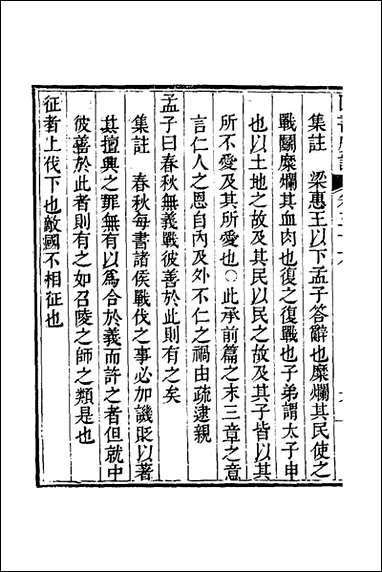 集註　梁惠王以下孟子答辭也糜爛其民使之
戰鬭糜爛其血肉也復之復戰也子弟謂太子申
也以土地之故及其民以民之故及其子皆以其
所不愛及其所愛也○此承前篇之末三章之意
言仁人之恩自內及外不仁之禍由疏逮親
孟子曰春秋無義戰彼善於此則有之矣
集註　春秋每書諸侯戰伐之事必加譏貶以著
其擅興之罪無有以爲合於義而許之者但就中
彼善於此者則有之如召陵之師之類是也
征者上伐下也敵國不相征也